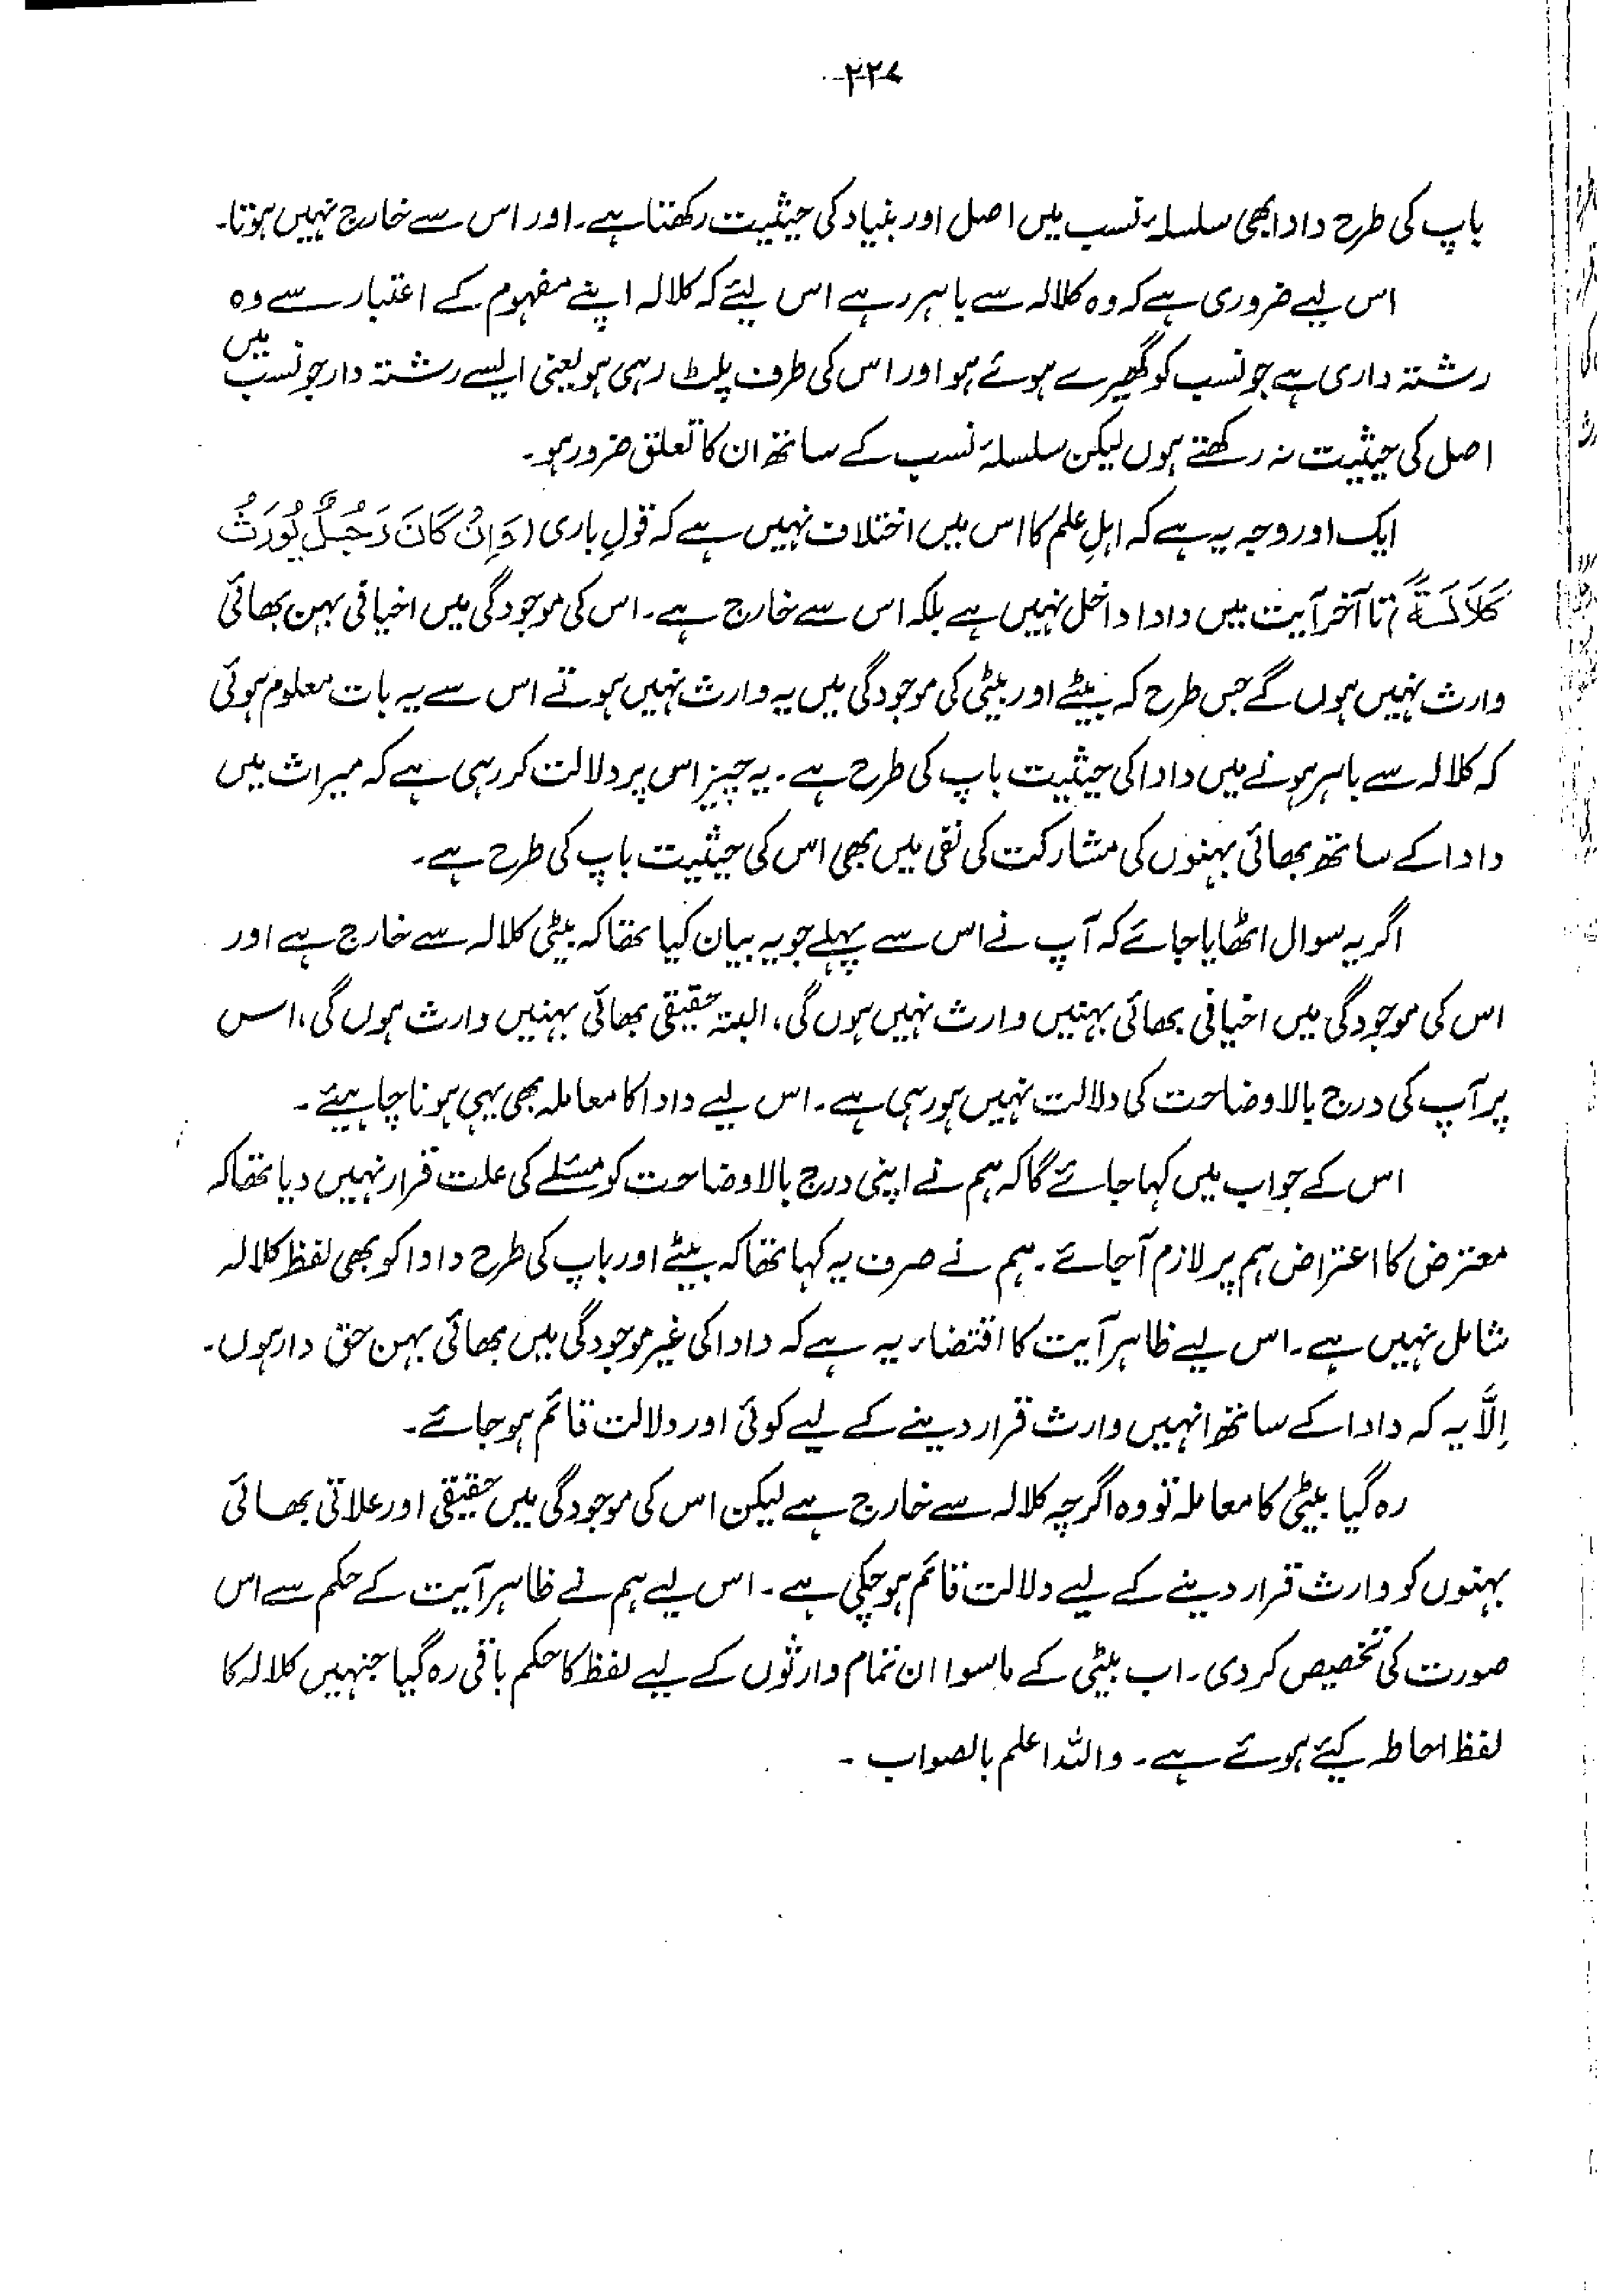 ۲۲۷
باپ کی طرح دادا بھی سلسلۂ نسب میں اصل اور بنیاد کی حیثیت رکھتا ہے۔ اور اس سے خارج نہیں ہوتا۔
اس لیے ضروری ہے کہ وہ کلالہ سے باہر رہے اس لیئے کہ کلالہ اپنے مفہوم کے اعتبار سے وہ
رشتہ داری ہے جو نسب کو گھیرے ہوئے ہو اور اس کی طرف پلٹ رہی ہو یعنی ایسے رشتہ دار جو نسب میں
اصل کی حیثیت نہ رکھتے ہوں لیکن سلسلۂ نسب کے ساتھ ان کا تعلق ضرور ہو۔
ایک اور وجہ یہ ہے کہ اہلِ علم کا اس میں اختلاف نہیں ہے کہ قولِ باری (وَاِنْ كَانَ رَجُلٌ يُّوْرَثُ
كَلَالَةً) تا آخر آیت میں دادا داخل نہیں ہے بلکہ اس سے خارج ہے۔ اس کی موجودگی میں اخیافی بہن بھائی
وارث نہیں ہوں گے جس طرح کہ بیٹے اور بیٹی کی موجودگی میں یہ وارث نہیں ہوتے اس سے یہ بات معلوم ہوئی
کہ کلالہ سے باہر ہونے میں دادا کی حیثیت باپ کی طرح ہے۔ یہ چیز اس پر دلالت کر رہی ہے کہ میراث میں
دادا کے ساتھ بھائی بہنوں کی مشارکت کی نفی میں بھی اس کی حیثیت باپ کی طرح ہے۔
اگر یہ سوال اٹھایا جائے کہ آپ نے اس سے پہلے جو یہ بیان کیا تھا کہ بیٹی کلالہ سے خارج ہے اور
اس کی موجودگی میں اخیافی بھائی بہنیں وارث نہیں ہوں گی، البتہ حقیقی بھائی بہنیں وارث ہوں گی، اس
پر آپ کی درج بالا وضاحت کی دلالت نہیں ہو رہی ہے۔ اس لیے دادا کا معاملہ بھی یہی ہونا چاہیئے۔
اس کے جواب میں کہا جائے گا کہ ہم نے اپنی درج بالا وضاحت کو مسئلے کی علت قرار نہیں دیا تھا کہ
معترض کا اعتراض ہم پر لازم آ جائے۔ ہم نے صرف یہ کہا تھا کہ بیٹے اور باپ کی طرح دادا کو بھی لفظ کلالہ
شامل نہیں ہے۔ اس لیے ظاہر آیت کا اقتضاء یہ ہے کہ دادا کی غیر موجودگی میں بھائی بہن حق دار ہوں۔
اِلَّا یہ کہ دادا کے ساتھ انہیں وارث قرار دینے کے لیے کوئی اور دلالت قائم ہو جائے۔
رہ گیا بیٹی کا معاملہ تو وہ اگرچہ کلالہ سے خارج ہے لیکن اس کی موجودگی میں حقیقی اور علاتی بھائی
بہنوں کو وارث قرار دینے کے لیے دلالت قائم ہو چکی ہے۔ اس لیے ہم نے ظاہر آیت کے حکم سے اس
صورت کی تخصیص کر دی۔ اب بیٹی کے ماسوا ان تمام وارثوں کے لیے لفظ کا حکم باقی رہ گیا جنہیں کلالہ کا
لفظ احاطہ کیئے ہوئے ہے۔ واللہ اعلم بالصواب۔